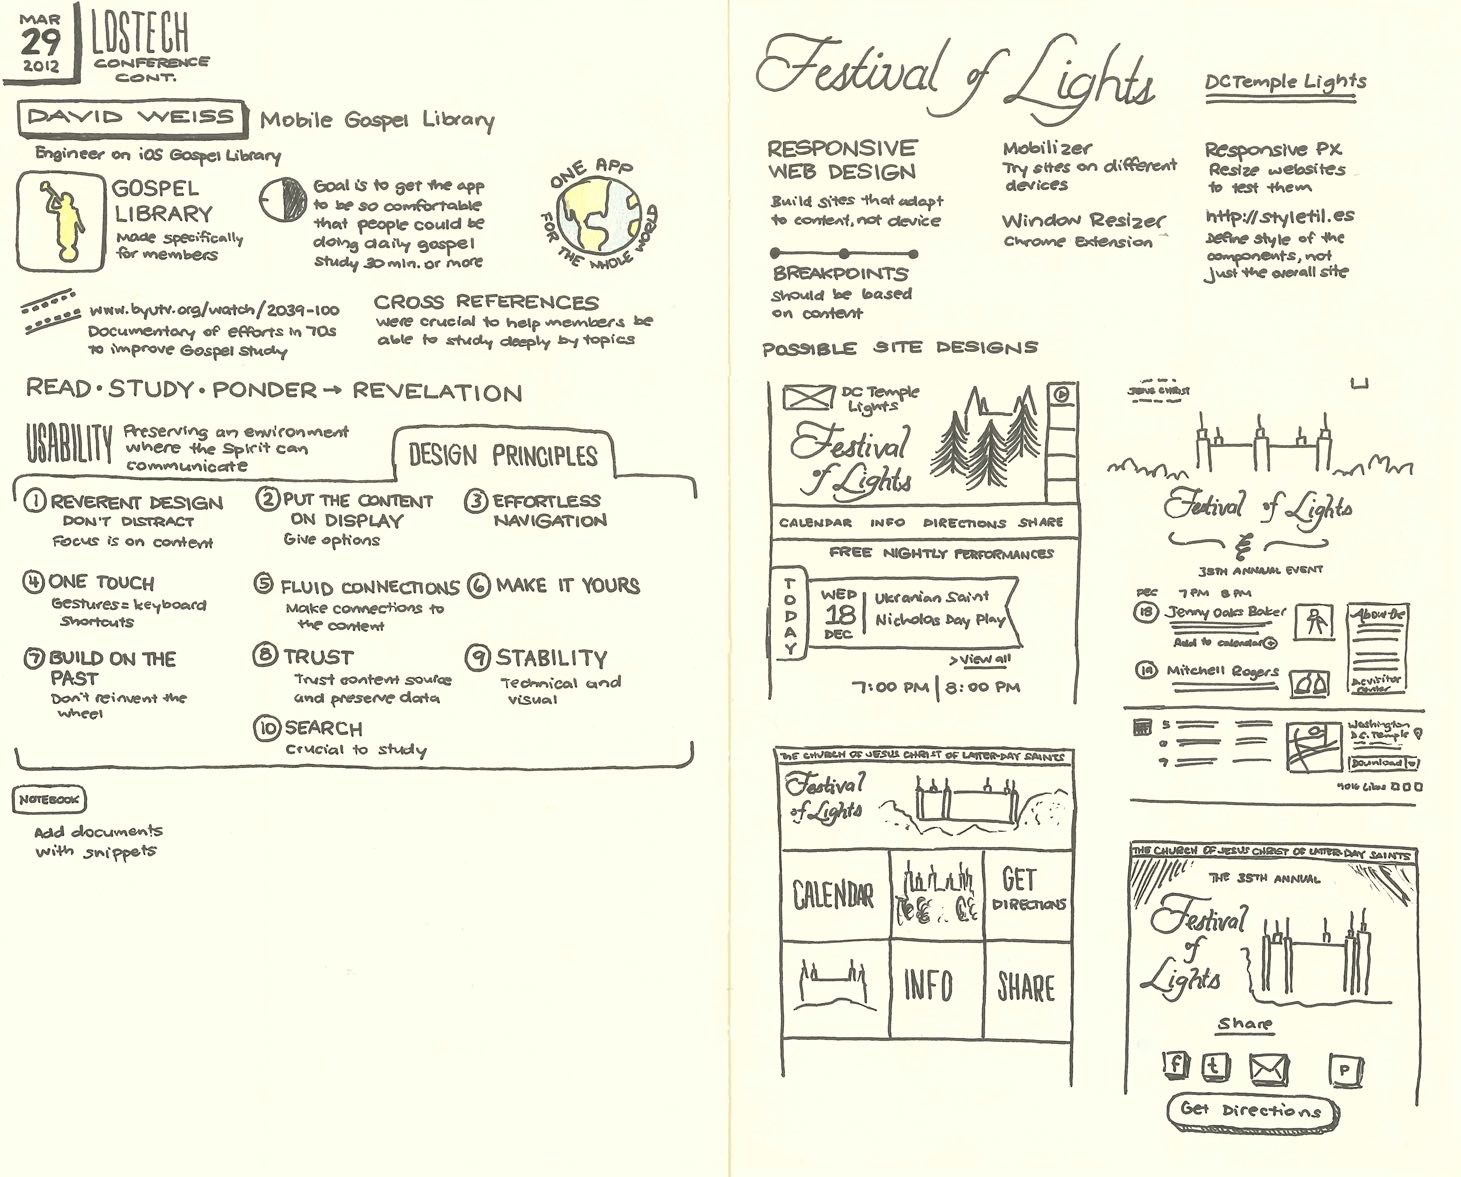 MAR
29
2012
LDSTECH
CONFERENCE
CONT.
DAVID WEISS
Mobile Gospel Library
Engineer on iOS Gospel Library
GOSPEL
LIBRARY
Made specifically
for members
Goal is to get the app
to be so comfortable
that people could be
doing daily gospel
study 30 min. or more
ONE APP
FOR THE WHOLE WORLD
www.byutv.org/watch/2039-100
Documentary of efforts in 70s
to improve Gospel Study
CROSS REFERENCES
were crucial to help members be
able to study deeply by topics
READ • STUDY • PONDER → REVELATION
USABILITY
Preserving an environment
where the Spirit can
communicate
DESIGN PRINCIPLES
1 REVERENT DESIGN
DON'T DISTRACT
Focus is on content
2 PUT THE CONTENT
ON DISPLAY
Give options
3 EFFORTLESS
NAVIGATION
4 ONE TOUCH
Gestures = keyboard
Shortcuts
5 FLUID CONNECTIONS
Make connections to
the content
6 MAKE IT YOURS
7 BUILD ON THE
PAST
Don't reinvent the
wheel
8 TRUST
Trust content source
and preserve data
9 STABILITY
Technical and
visual
10 SEARCH
Crucial to study
NOTEBOOK
Add documents
with snippets
Festival of Lights
DCTemple Lights
RESPONSIVE
WEB DESIGN
Build sites that adapt
to content, not device
BREAKPOINTS
should be based
on content
Mobilizer
Try sites on different
devices
Window Resizer
Chrome Extension
Responsive PX
Resize websites
to test them
http://styletil.es
Define style of the
components, not
just the overall site
POSSIBLE SITE DESIGNS
DC Temple
Lights
Festival
of Lights
CALENDAR INFO DIRECTIONS SHARE
FREE NIGHTLY PERFORMANCES
TODAY
WED
18
DEC
Ukranian Saint
Nicholas Day Play
> View all
7:00 PM | 8:00 PM
JESUS CHRIST
Festival of Lights
35TH ANNUAL EVENT
DEC 7 PM 8 PM
18 Jenny Oaks Baker
Add to calendar
19 Mitchell Rogers
About the
DC Visitor
Center
5
6
7
Washington
D.C. Temple
Download
Likes
THE CHURCH OF JESUS CHRIST OF LATTER-DAY SAINTS
Festival
of Lights
CALENDAR
GET
DIRECTIONS
INFO
SHARE
THE CHURCH OF JESUS CHRIST OF LATTER-DAY SAINTS
THE 35TH ANNUAL
Festival
of
Lights
Share
f t P
Get Directions